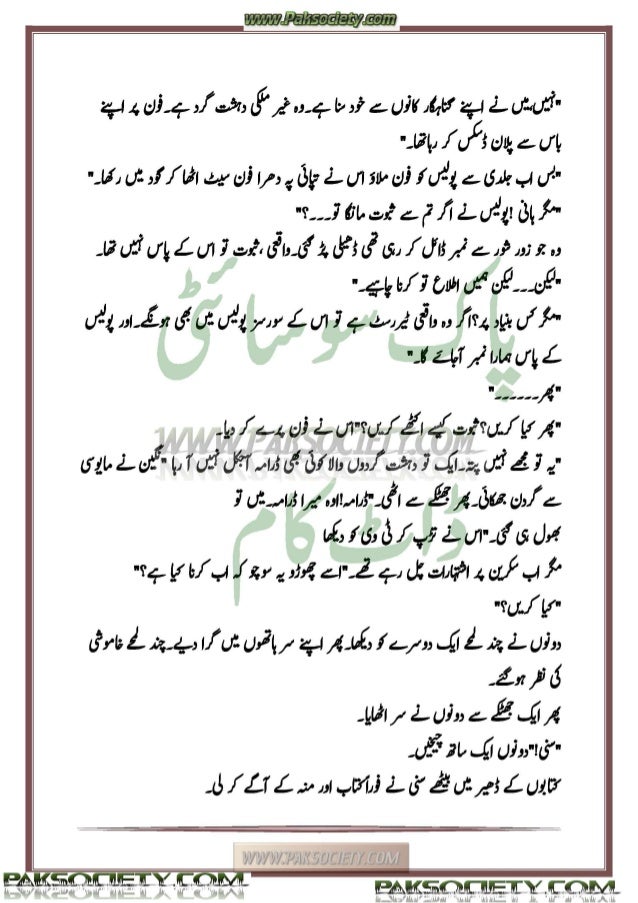 www.Paksociety.com
"نہیں،میں نے اپنے گناہگار کانوں سے خود سنا ہے۔وہ غیر ملکی دہشت گرد ہے۔فون پر اپنے
باس سے پلان ڈسکس کر رہاتھا۔"
"بس اب جلدی سے پولیس کو فون ملاؤ اس نے تپائی پہ دھرا فون سیٹ اٹھا کر گود میں رکھا۔"
"مگر ہانی !پولیس نے اگر تم سے ثبوت مانگا تو۔۔۔؟"
وہ جو زور شور سے نمبر ڈائل کر رہی تھی ڈھیلی پڑ گئی۔واقعی ،ثبوت تو اس کے پاس نہیں تھا۔
"لیکن۔۔۔لیکن ہمیں اطلاع تو کرنا چاہیے۔"
"مگر کس بنیاد پر؟اگر وہ واقعی ٹیررسٹ ہے تو اس کے سورسز پولیس میں بھی ہونگے۔اور پولیس
کے پاس ہمارا نمبر آجائے گا۔"
"پھر۔۔۔۔۔۔"
"پھر کیا کریں؟ثبوت کیسے اکٹھے کریں؟"اس نے فون پرے کر دیا۔
"یہ تو مجھے نہیں پتہ۔ایک تو دہشت گردوں والا کوئی بھی ڈرامہ آجکل نہیں آ رہا "نگین نے مایوسی
سے گردن جھکائی۔پھر جھٹکے سے اٹھی۔"ڈرامہ!اوہ میرا ڈرامہ۔میں تو
بھول ہی گئی۔"اس نے تڑپ کر ٹی وی کو دیکھا
مگر اب سکرین پر اشتہارات چل رہے تھے۔"اسے چھوڑو یہ سوچو کہ اب کرنا کیا ہے؟"
"کیا کریں؟"
دونوں نے چند لمحے ایک دوسرے کو دیکھا۔پھر اپنے سر ہاتھوں میں گرا دیے۔چند لمحے خاموشی
کی نظر ہوگئے۔
پھر ایک جھٹکے سے دونوں نے سر اٹھایا۔
"سنی!"دونوں ایک ساتھ چیخیں۔
کتابوں کے ڈھیر میں بیٹھے سنی نے فوراًکتاب اور منہ کے آگے کر لی۔
پاک سوسائٹی
WWW.PAKSOCIETY.COM
ڈاٹ کام
WWW.PAKSOCIETY.COM
PAKSOCIETY.COM
PAKSOCIETY.COM